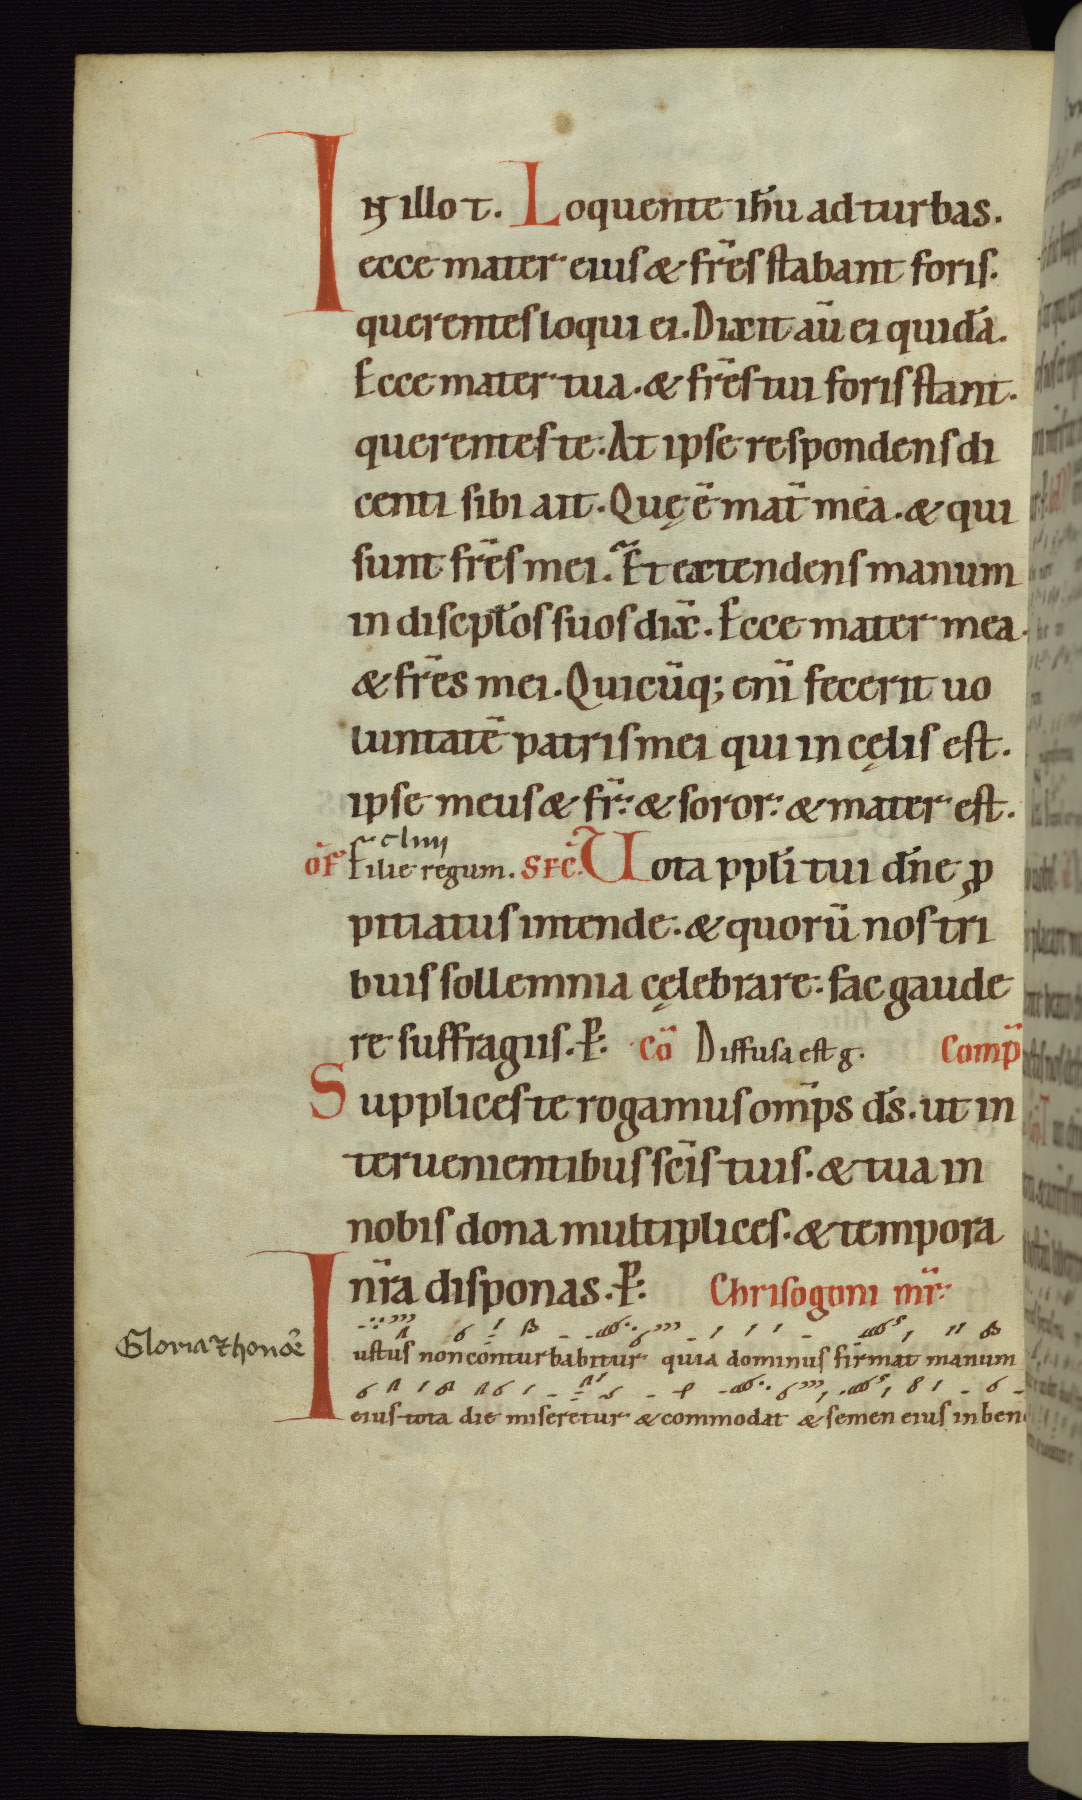 In illo t. Loquente ih̄u ad turbas.
ecce mater eius & fr̄es stabant foris.
querentes loqui ei. Dixit aū ei quidā.
Ecce mater tua. & fr̄es tui foris stant.
querentes te. At ipse respondens di
centi sibi ait. Quę ē mat̄ mea. & qui
sunt fr̄es mei. Et extendens manum
in discipl̄os suos dix̄. Ecce mater mea.
& fr̄es mei. Quicūq; enī fecerit uo
luntatē patris mei qui in cęlis est.
ipse meus & fr̄. & soror. & mater est.
cliiii
OF̄ Filie regum. SEC̄. Uota ppl̄i tui dn̄e ꝓ
pitiatus intende. & quorū nos tri
buis sollemnia cęlebrare. fac gaude
re suffragiis. P. CŌ Diffusa est g. Comp̄
Supplices te rogamus om̄ps d̄s. ut in
teruenientibus sc̄is tuis. & tua in
nobis dona multiplices. & tempora
nr̄a disponas. P. Chrisogoni mr̄.
Gloria & honōe
Iustus non conturbabitur quia dominus firmat manum
eius tota die miseretur & commodat & semen eius in ben